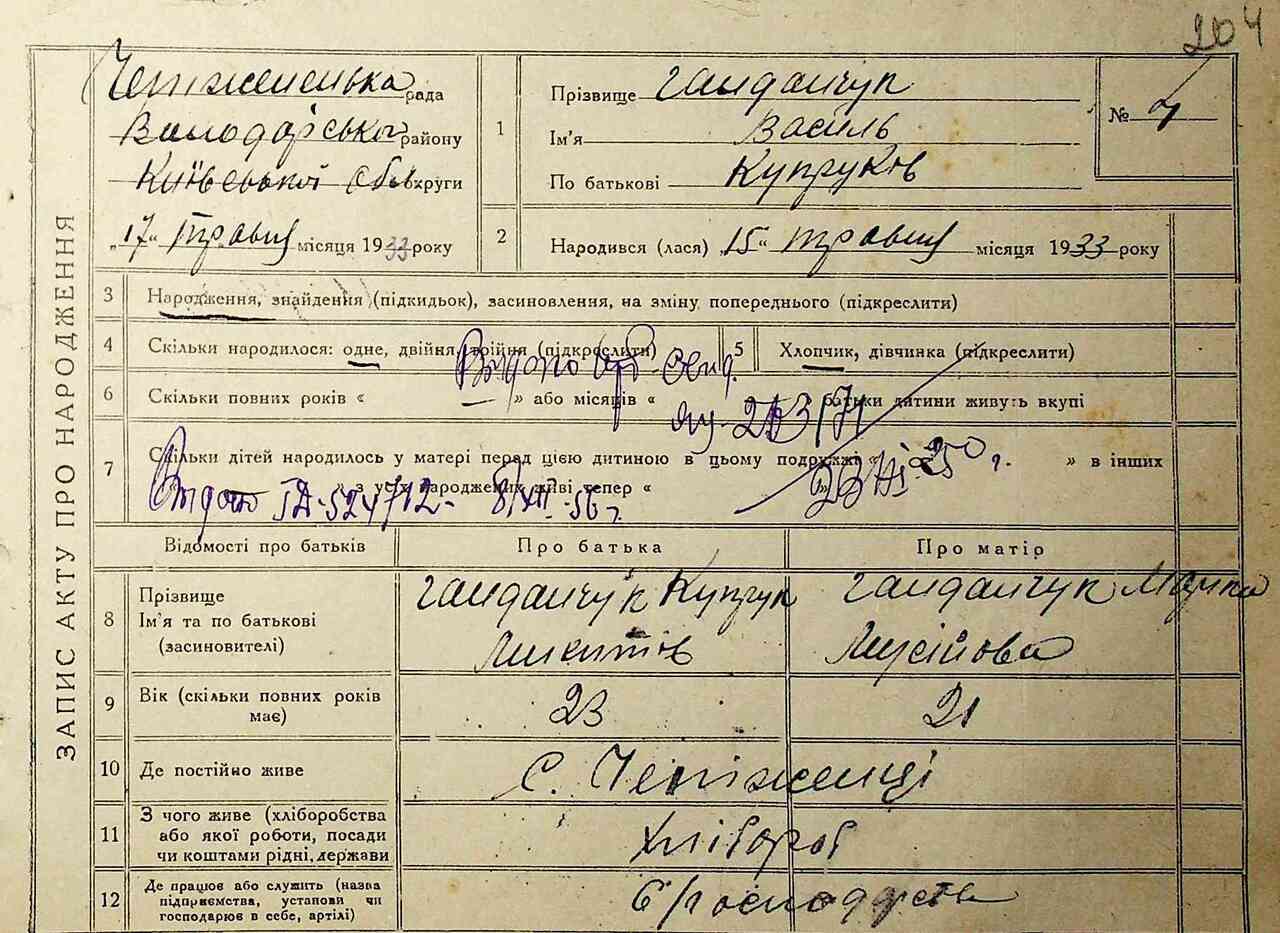 204
рада
Володарської району
Київської Обл. округи
„17“ травня місяця 1933 року
1
Прізвище Гайдайчук
Ім'я Василь
По батькові Купруков
№ 7
2
Народився (лася) „15“ травня місяця 1933 року
ЗАПИС АКТУ ПРО НАРОДЖЕННЯ
3 Народження, знайдення (підкидьок), засиновлення, на зміну попереднього (підкреслити)
4 Скільки народилося: одне, двійня, трійня (підкреслити)
5 Хлопчик, дівчинка (підкреслити)
Видано
6 Скільки повних років « — » або місяців « батьки дитини живуть вкупі
7 Скільки дітей народилось у матері перед цією дитиною в цьому подружжі « » в інших
« » з усіх народжених живі тепер « »
Видано 524712 - 8/XII - 56 г.
Відомості про батьків
Про батька
Про матір
8 Прізвище
Ім'я та по батькові
(засиновителі)
Гайдайчук Купрук
Микитів
Гайдайчук
Мусійовна
9 Вік (скільки повних років
має)
23
21
10 Де постійно живе
с.
11 З чого живе (хліборобства
або якої роботи, посади
чи коштами рідні, держави
Хлібороб
12 Де працює або служить (назва
підприємства, установи чи
господарює в себе, артілі)
С/господарства